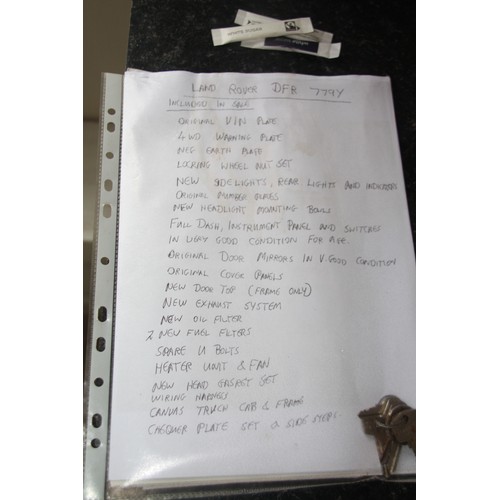 LAND ROVER DFR 779Y
INCLUDED IN SALE
ORIGINAL VIN PLATE
4WD WARNING PLATE
NEG EARTH PLATE
LOCKING WHEEL NUT SET
NEW SIDELIGHTS, REAR LIGHTS AND INDICATORS
ORIGINAL NUMBER PLATES
NEW HEADLIGHT MOUNTING BOWLS
FULL DASH, INSTRUMENT PANEL AND SWITCHES
IN VERY GOOD CONDITION FOR AGE.
ORIGINAL DOOR MIRRORS IN V.GOOD CONDITION
ORIGINAL COVER PANELS
NEW DOOR TOP (FRAME ONLY)
NEW EXHAUST SYSTEM
NEW OIL FILTER
2 NEW FUEL FILTERS
SPARE U BOLTS
HEATER UNIT & FAN
NEW HEAD GASKET SET
WIRING HARNESS
CANVAS TRUCK CAB & FRAME
CHEQUER PLATE SET & SIDE STEPS.